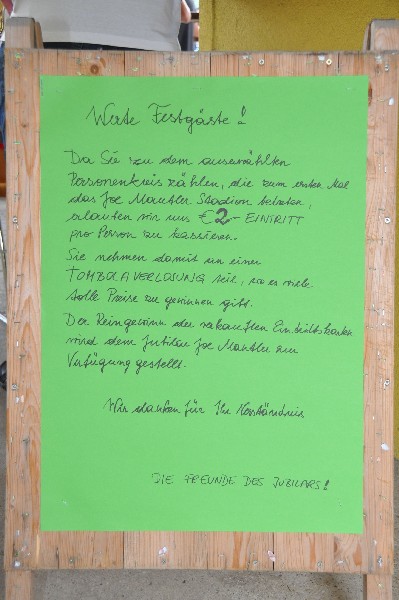 Werte Festgäste!
Da Sie zu dem auserwählten
Personenkreis zählen, die zum ersten Mal
das Joe Mantler Stadion betreten,
erlauben wir uns € 2,- EINTRITT
pro Person zu kassieren.
Sie nehmen damit an einer
TOMBOLAVERLOSUNG teil, wo es viele
tolle Preise zu gewinnen gibt.
Der Reingewinn der verkauften Eintrittskarten
wird dem Jubilar Joe Mantler zur
Verfügung gestellt.
Wir danken für Ihr Verständnis
DIE FREUNDE DES JUBILARS!